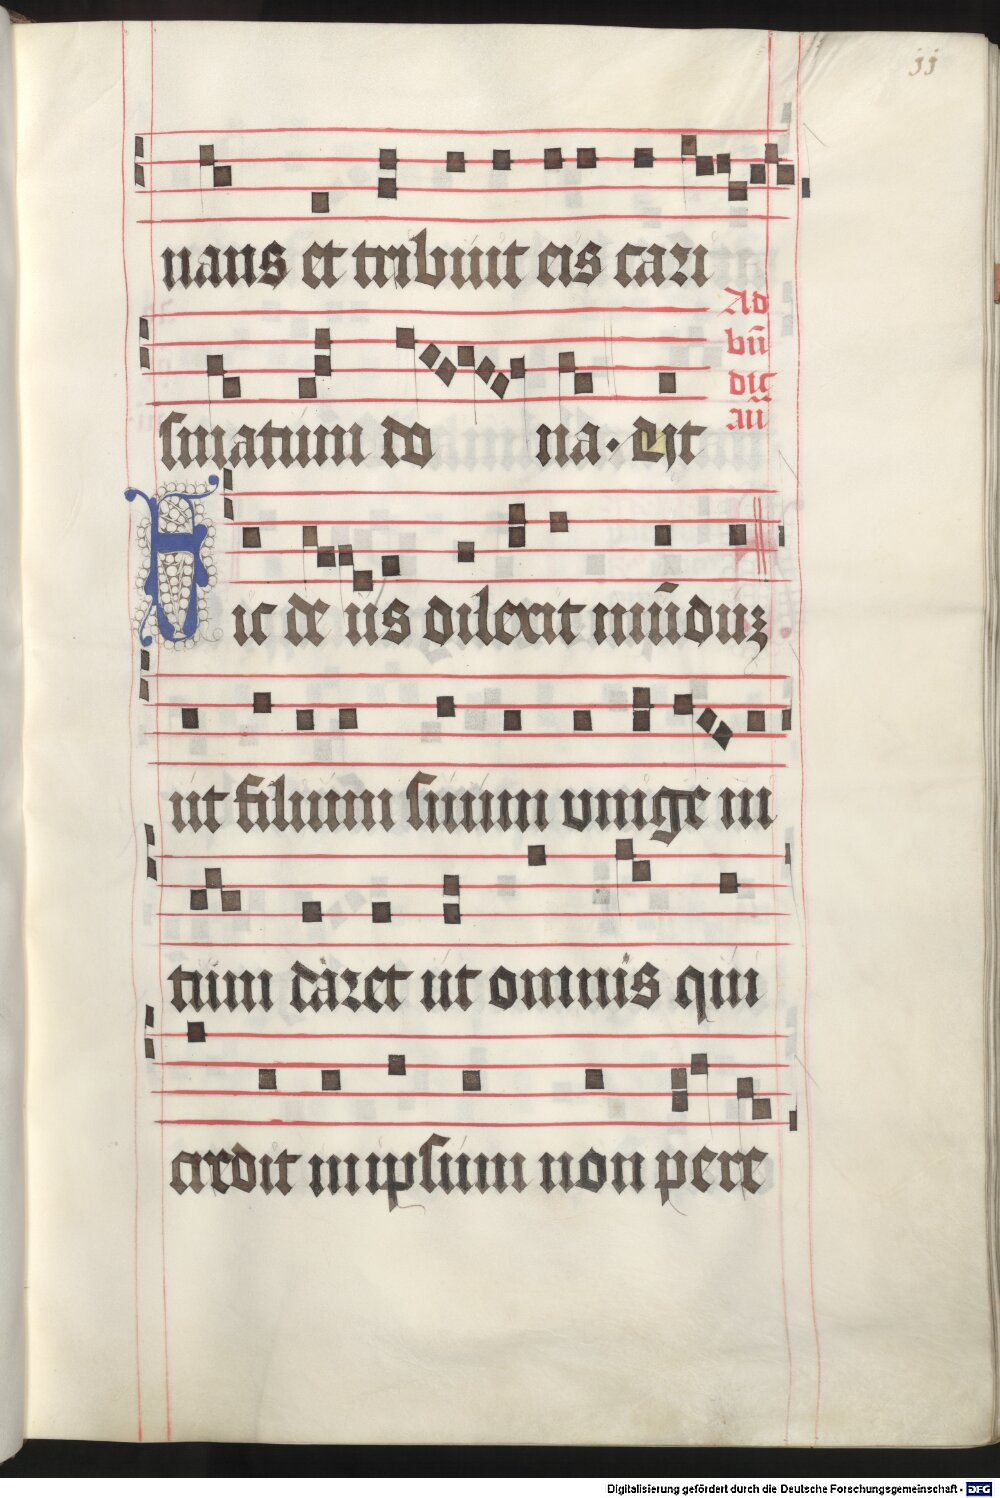 33
nans et tribuit eis cari
smatum do na. Dit
Ad
bn̄
dic
an̄
Sic deus dilexit mūduz
ut filium suum unige ni
tum daret ut omnis qui
credit in ipsum non pere
Digitalisierung gefördert durch die Deutsche Forschungsgemeinschaft - DFG